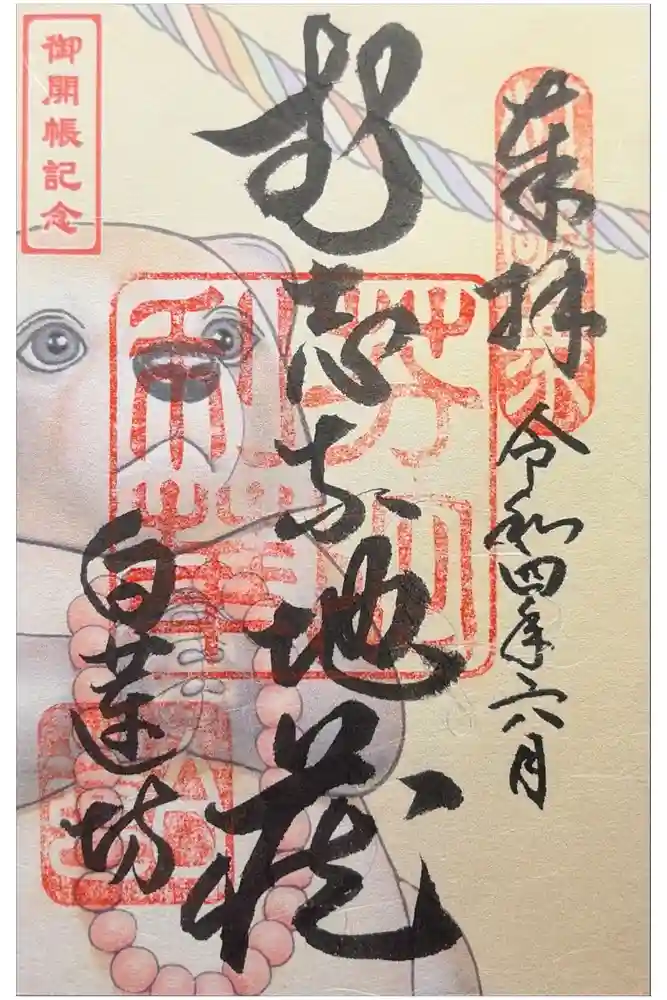 奉拝 令和四年六月
む志な地蔵
白蓮坊
御開帳記念